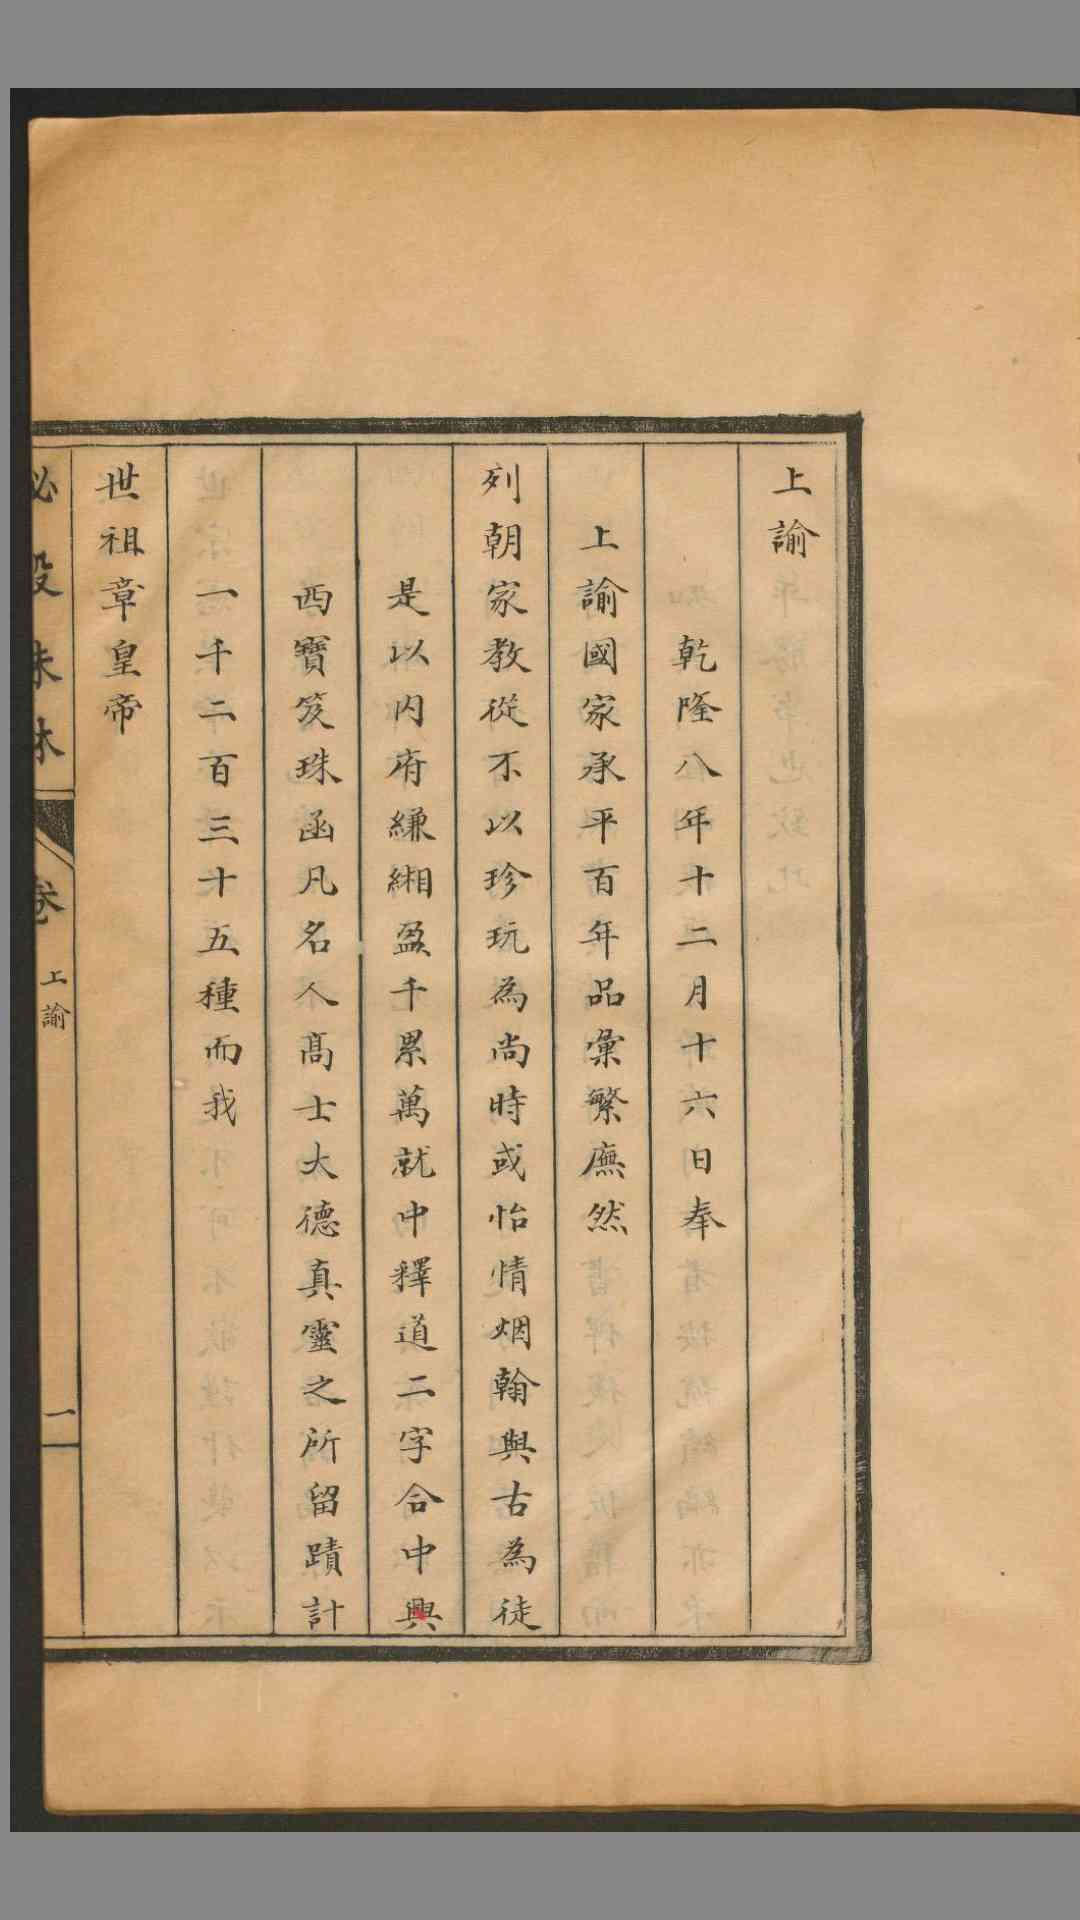 上諭
乾隆八年十二月十六日奉
上諭國家承平百年品彙繁廡然
列朝家教從不以珍玩為尚時或怡情烟翰與古為徒
是以内府縑緗盈千累萬就中釋道二字合中興
西寶笈珠函凡名人高士大德真靈之所留蹟計
一千二百三十五種而我
世祖章皇帝
必殿珠林
卷
上諭
一